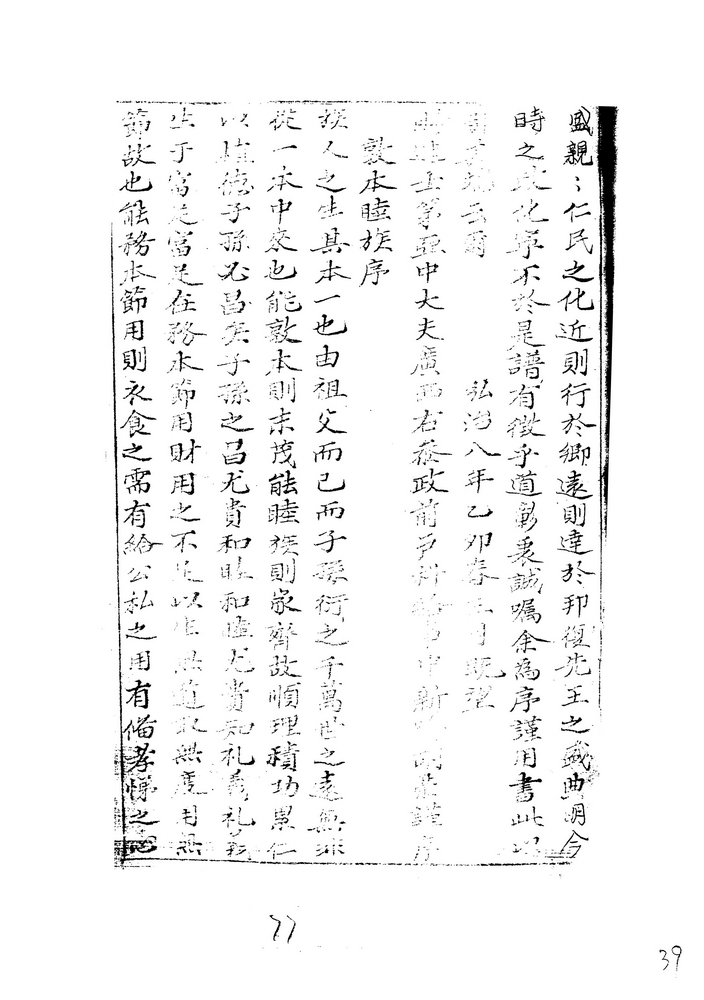 盛親〻仁民之化近則行於鄉遠則達於邦復先王之盛典明今
時之政化寧不於是譜有徵乎道彰衷誠囑余為序謹用書此以
云爾 弘治八年乙卯春 月既望
進士第亞中大夫廣西右叅政前戶科給事中新 謹序
敦本睦族序
族人之生其本一也由祖父而已而子孫衍之千萬世之遠無非
從一本中來也能敦本則末茂能睦族則家齊故順理積功累仁
以植德子孫必昌矣子孫之昌尤貴和睦和睦尤貴知礼義礼義
生于富足富足在務本節用財用之不足以生無道取無度用無
節故也能務本節用則衣食之需有給公私之用有俻孝悌之
77
39